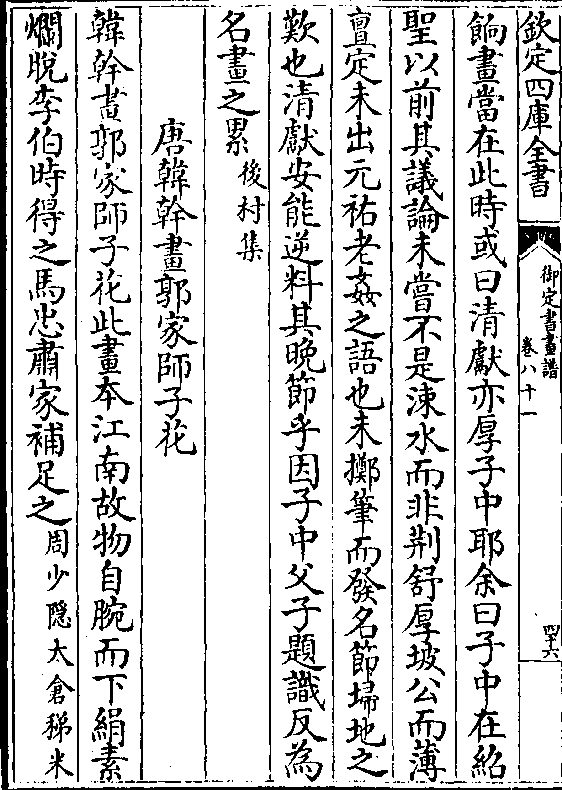 欽定四庫全書
御定書畫譜
卷八十一
四十六
餉畫當在此時或曰清獻亦厚子中耶余曰子中在紹
聖以前其議論未嘗不是涑水而非荆舒厚坡公而薄
亶定未出元祐老姦之語也未擲筆而發名節埽地之
歎也清獻安能逆料其晚節乎因子中父子題識反為
名畫之累後村集
唐韓幹畫郭家師子花
韓幹畫郭家師子花此畫本江南故物自腕而下絹素
爛脫李伯時得之馬忠肅家補足之周少隠太倉稊米